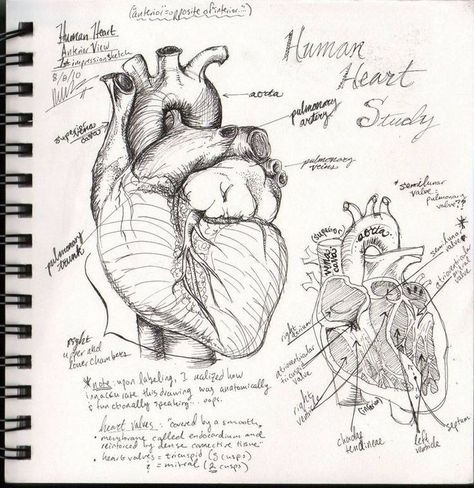 (anterior = opposite of interior...)
Human Heart
Anterior View
1st impression sketch
8/8/10
Human
Heart
Study
aorta
pulmonary
artery
superior
cava
pulmonary
veins
pulmonary
trunk
right
upper and
lower chambers
*note: upon labeling, I realized how
inaccurate this drawing was anatomically
& functionally speaking... oops.
heart valves: covered by a smooth,
• membrane called endocardium and
reinforced by dense connective tissue.
• heart valves = tricuspid (3 cusps)
& = mitral (2 cusps)
*semilunar
valve =
pulmonary
valve??
(superior)
vena
cava
aorta
semilunar
valve*
atrioventricular
mitral
valve
right
atrium
atrioventricular
tricuspid
valve
right
ventricle
(inferior)
chordae
tendineae
left
ventricle
septum